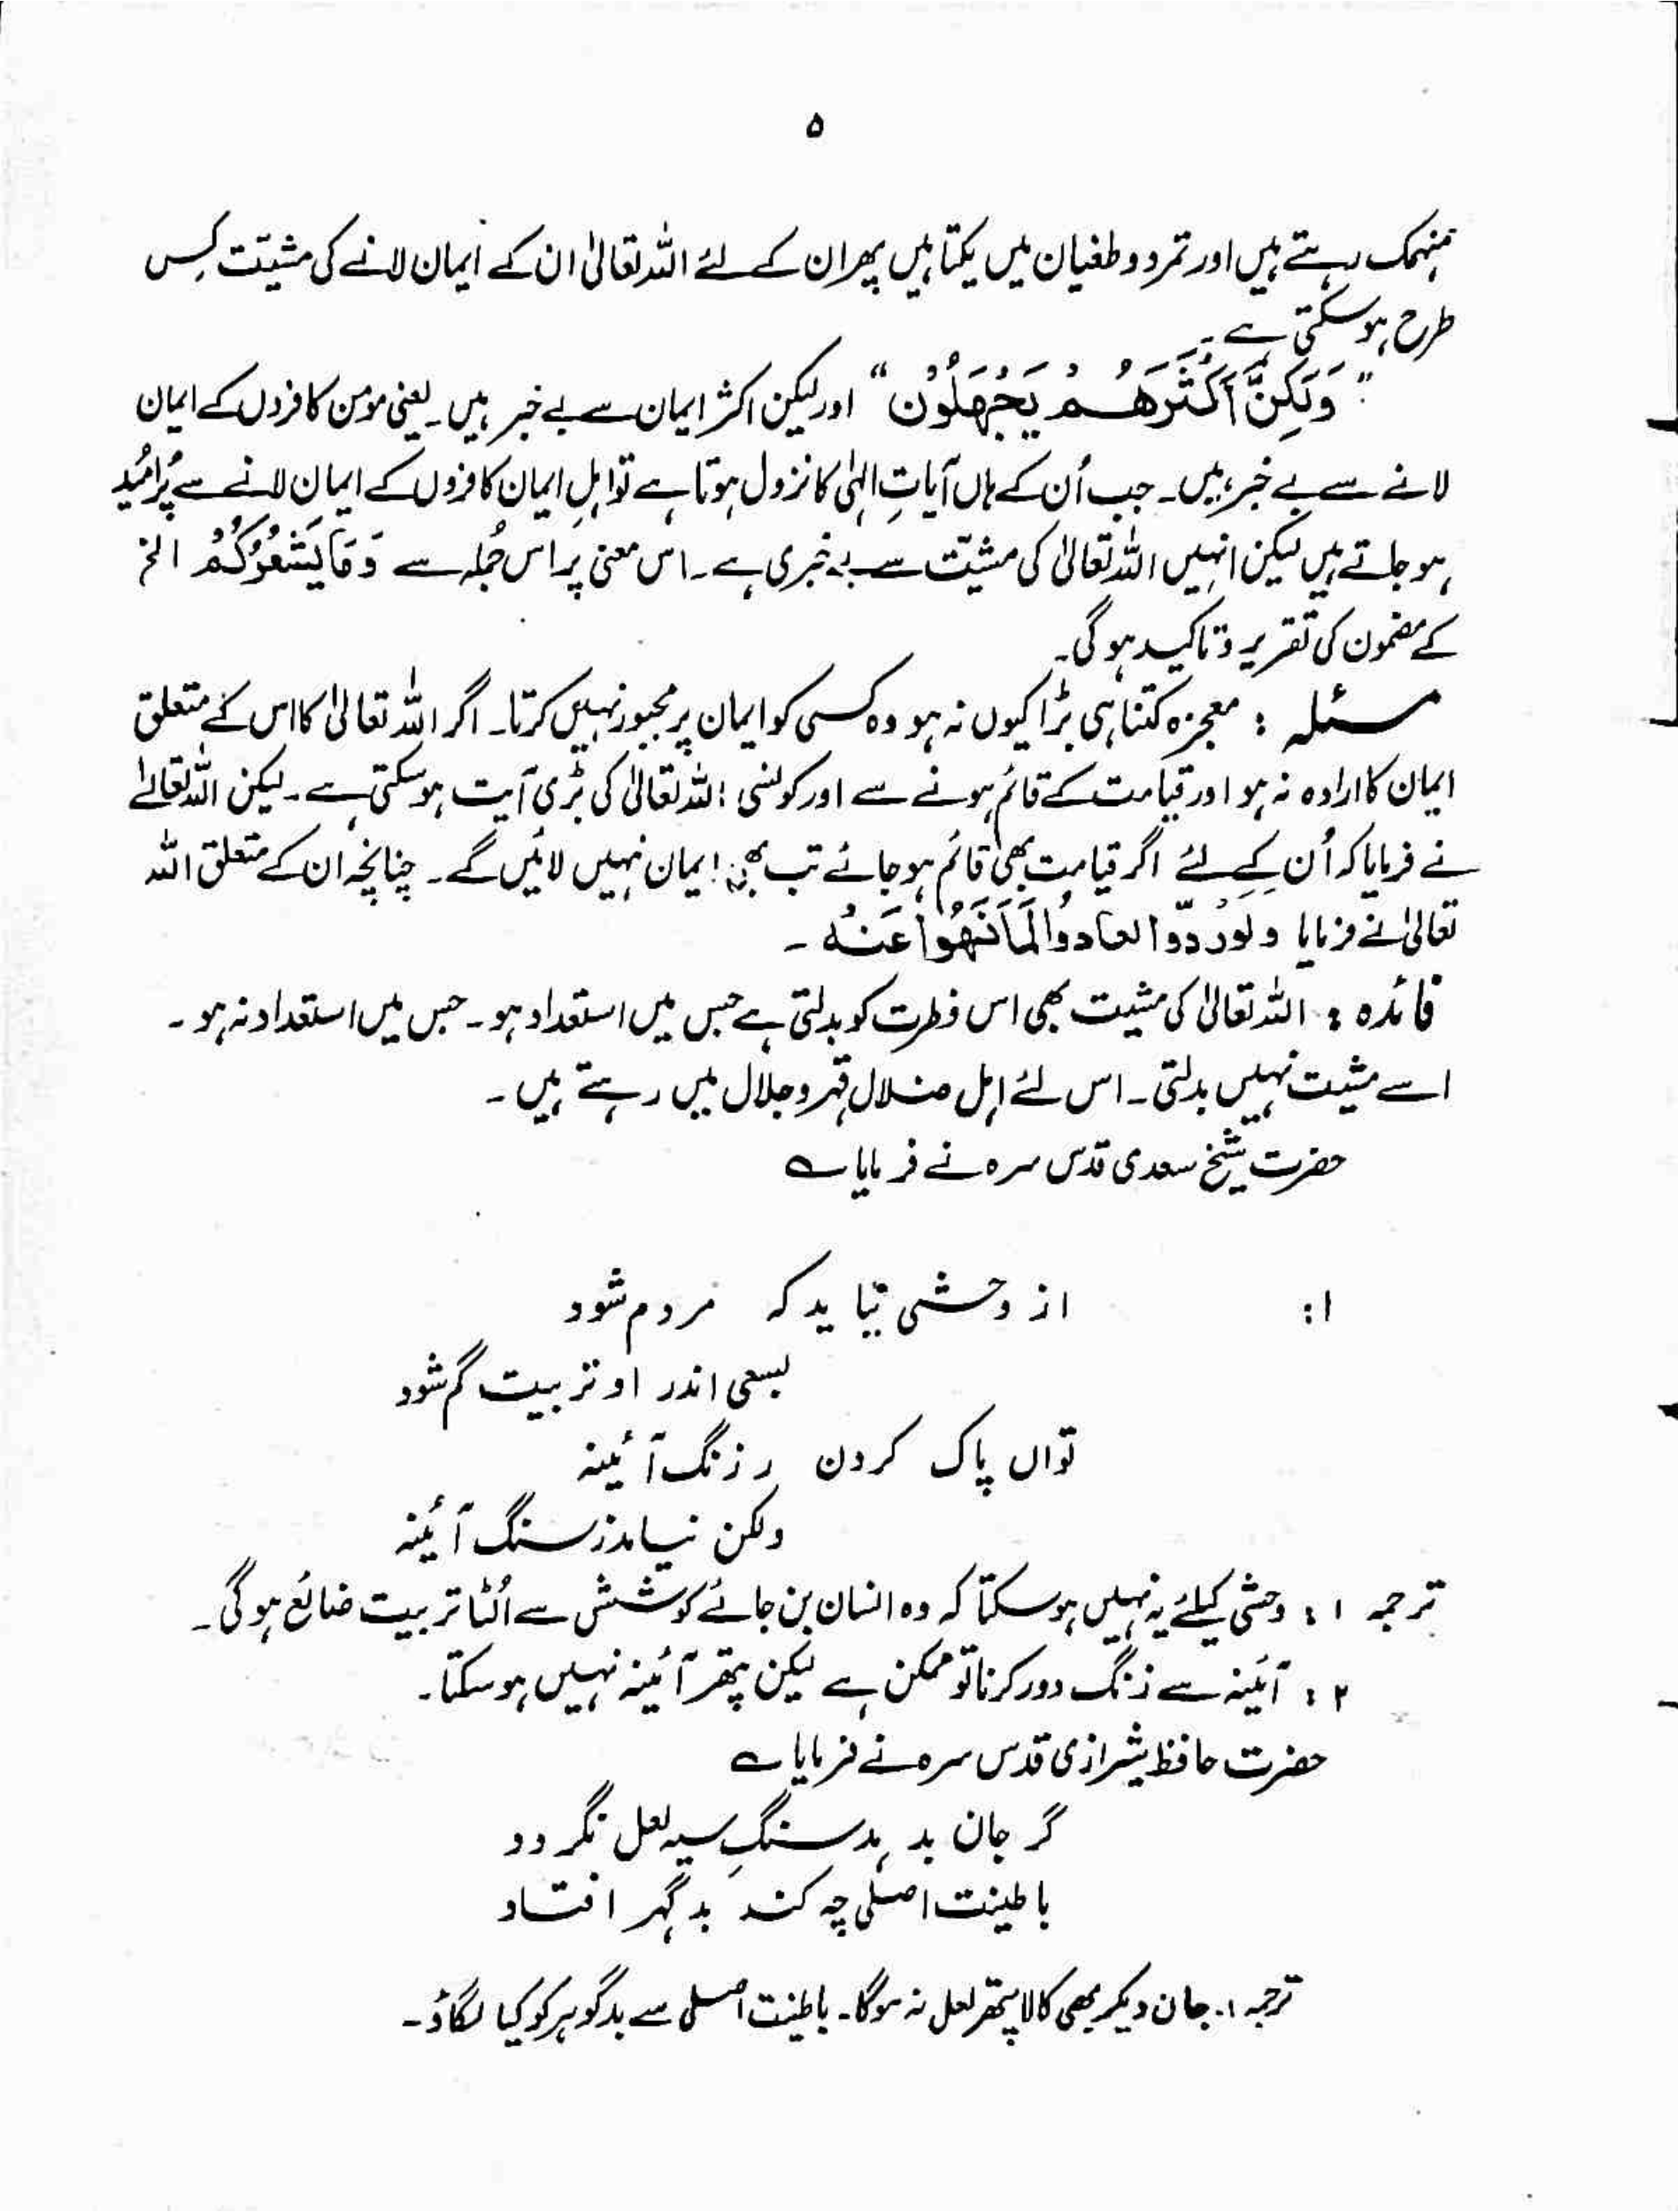 ۵
منہمک رہتے ہیں اور تمرد و طغیان میں یکتا ہیں پھر ان کے لئے اللہ تعالیٰ ان کے ایمان لانے کی مشیّت کس
طرح ہو سکتی ہے۔
”وَلٰكِنَّ اَكْثَرَهُمْ يَجْهَلُوْنَ“ اور لیکن اکثر ایمان سے بے خبر ہیں۔ یعنی مومن کافروں کے ایمان
لانے سے بے خبر ہیں۔ جب اُن کے ہاں آیاتِ الہٰی کا نزول ہوتا ہے تو اہلِ ایمان کافروں کے ایمان لانے سے پُرامُید
ہو جاتے ہیں لیکن انہیں اللہ تعالیٰ کی مشیّت سے بے خبری ہے۔ اس معنی پر اس جُملہ سے وَمَا يُشْعِرُكُمْ الخ
کے مضمون کی تقریر و تاکید ہو گی۔
مسئلہ : معجزہ کتنا ہی بڑا کیوں نہ ہو وہ کسی کو ایمان پر مجبور نہیں کرتا۔ اگر اللہ تعالیٰ کا اس کے متعلق
ایمان کا ارادہ نہ ہو اور قیامت کے قائم ہونے سے اور کونسی اللہ تعالیٰ کی بڑی آیت ہو سکتی ہے۔ لیکن اللہ تعالےٰ
نے فرمایا کہ اُن کے لئے اگر قیامت بھی قائم ہو جائے تب بھی ایمان نہیں لائیں گے۔ چنانچہ ان کے متعلق اللہ
تعالیٰ نے فرمایا ولو رُدّوا لعادوا لِمَا نُهُوْا عَنْهُ ۔
فائدہ : اللہ تعالیٰ کی مشیت بھی اس فطرت کو بدلتی ہے جس میں استعداد ہو۔ جس میں استعداد نہ ہو۔
اسے مشیت نہیں بدلتی۔ اس لئے اہل ضلال قہر و جلال میں رہتے ہیں۔
حضرت شیخ سعدی قدس سرہ نے فرمایا ؎
۱: از وحشی نیاید کہ مردم شود
بسعی اندر او تربیت گم شود
تواں پاک کردن ز زنگ آئینہ
ولکن نیاید ز سنگ آئینہ
ترجمہ ۱ : وحشی کیلئے یہ نہیں ہو سکتا کہ وہ انسان بن جائے کوشش سے اُلٹا تربیت ضائع ہو گی۔
۲ : آئینہ سے زنگ دور کرنا تو ممکن ہے لیکن پتھر آئینہ نہیں ہو سکتا۔
حضرت حافظ شیرازی قدس سرہ نے فرمایا ؎
گر جان بدہد سنگِ سیہ لعل نگردد
باطینت اصلی چہ کند بد گہر افتاد
ترجمہ :۔ جان دیکر بھی کالا پتھر لعل نہ ہو گا۔ باطینت اصلی سے بدگوہر کو کیا لگاؤ۔